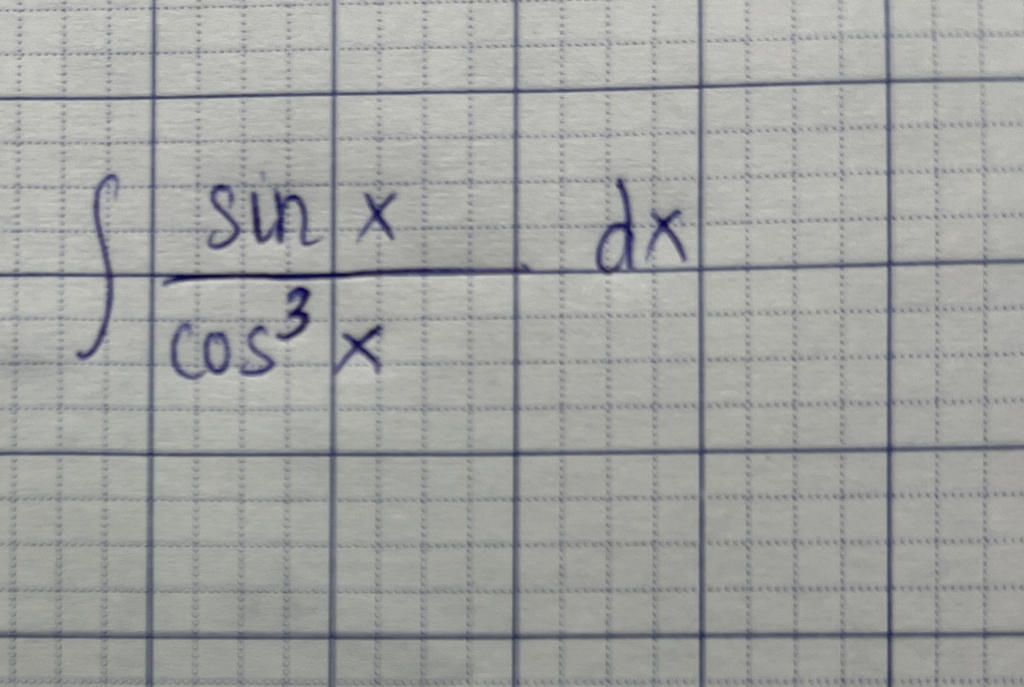 ∫ sin x / cos³ x dx